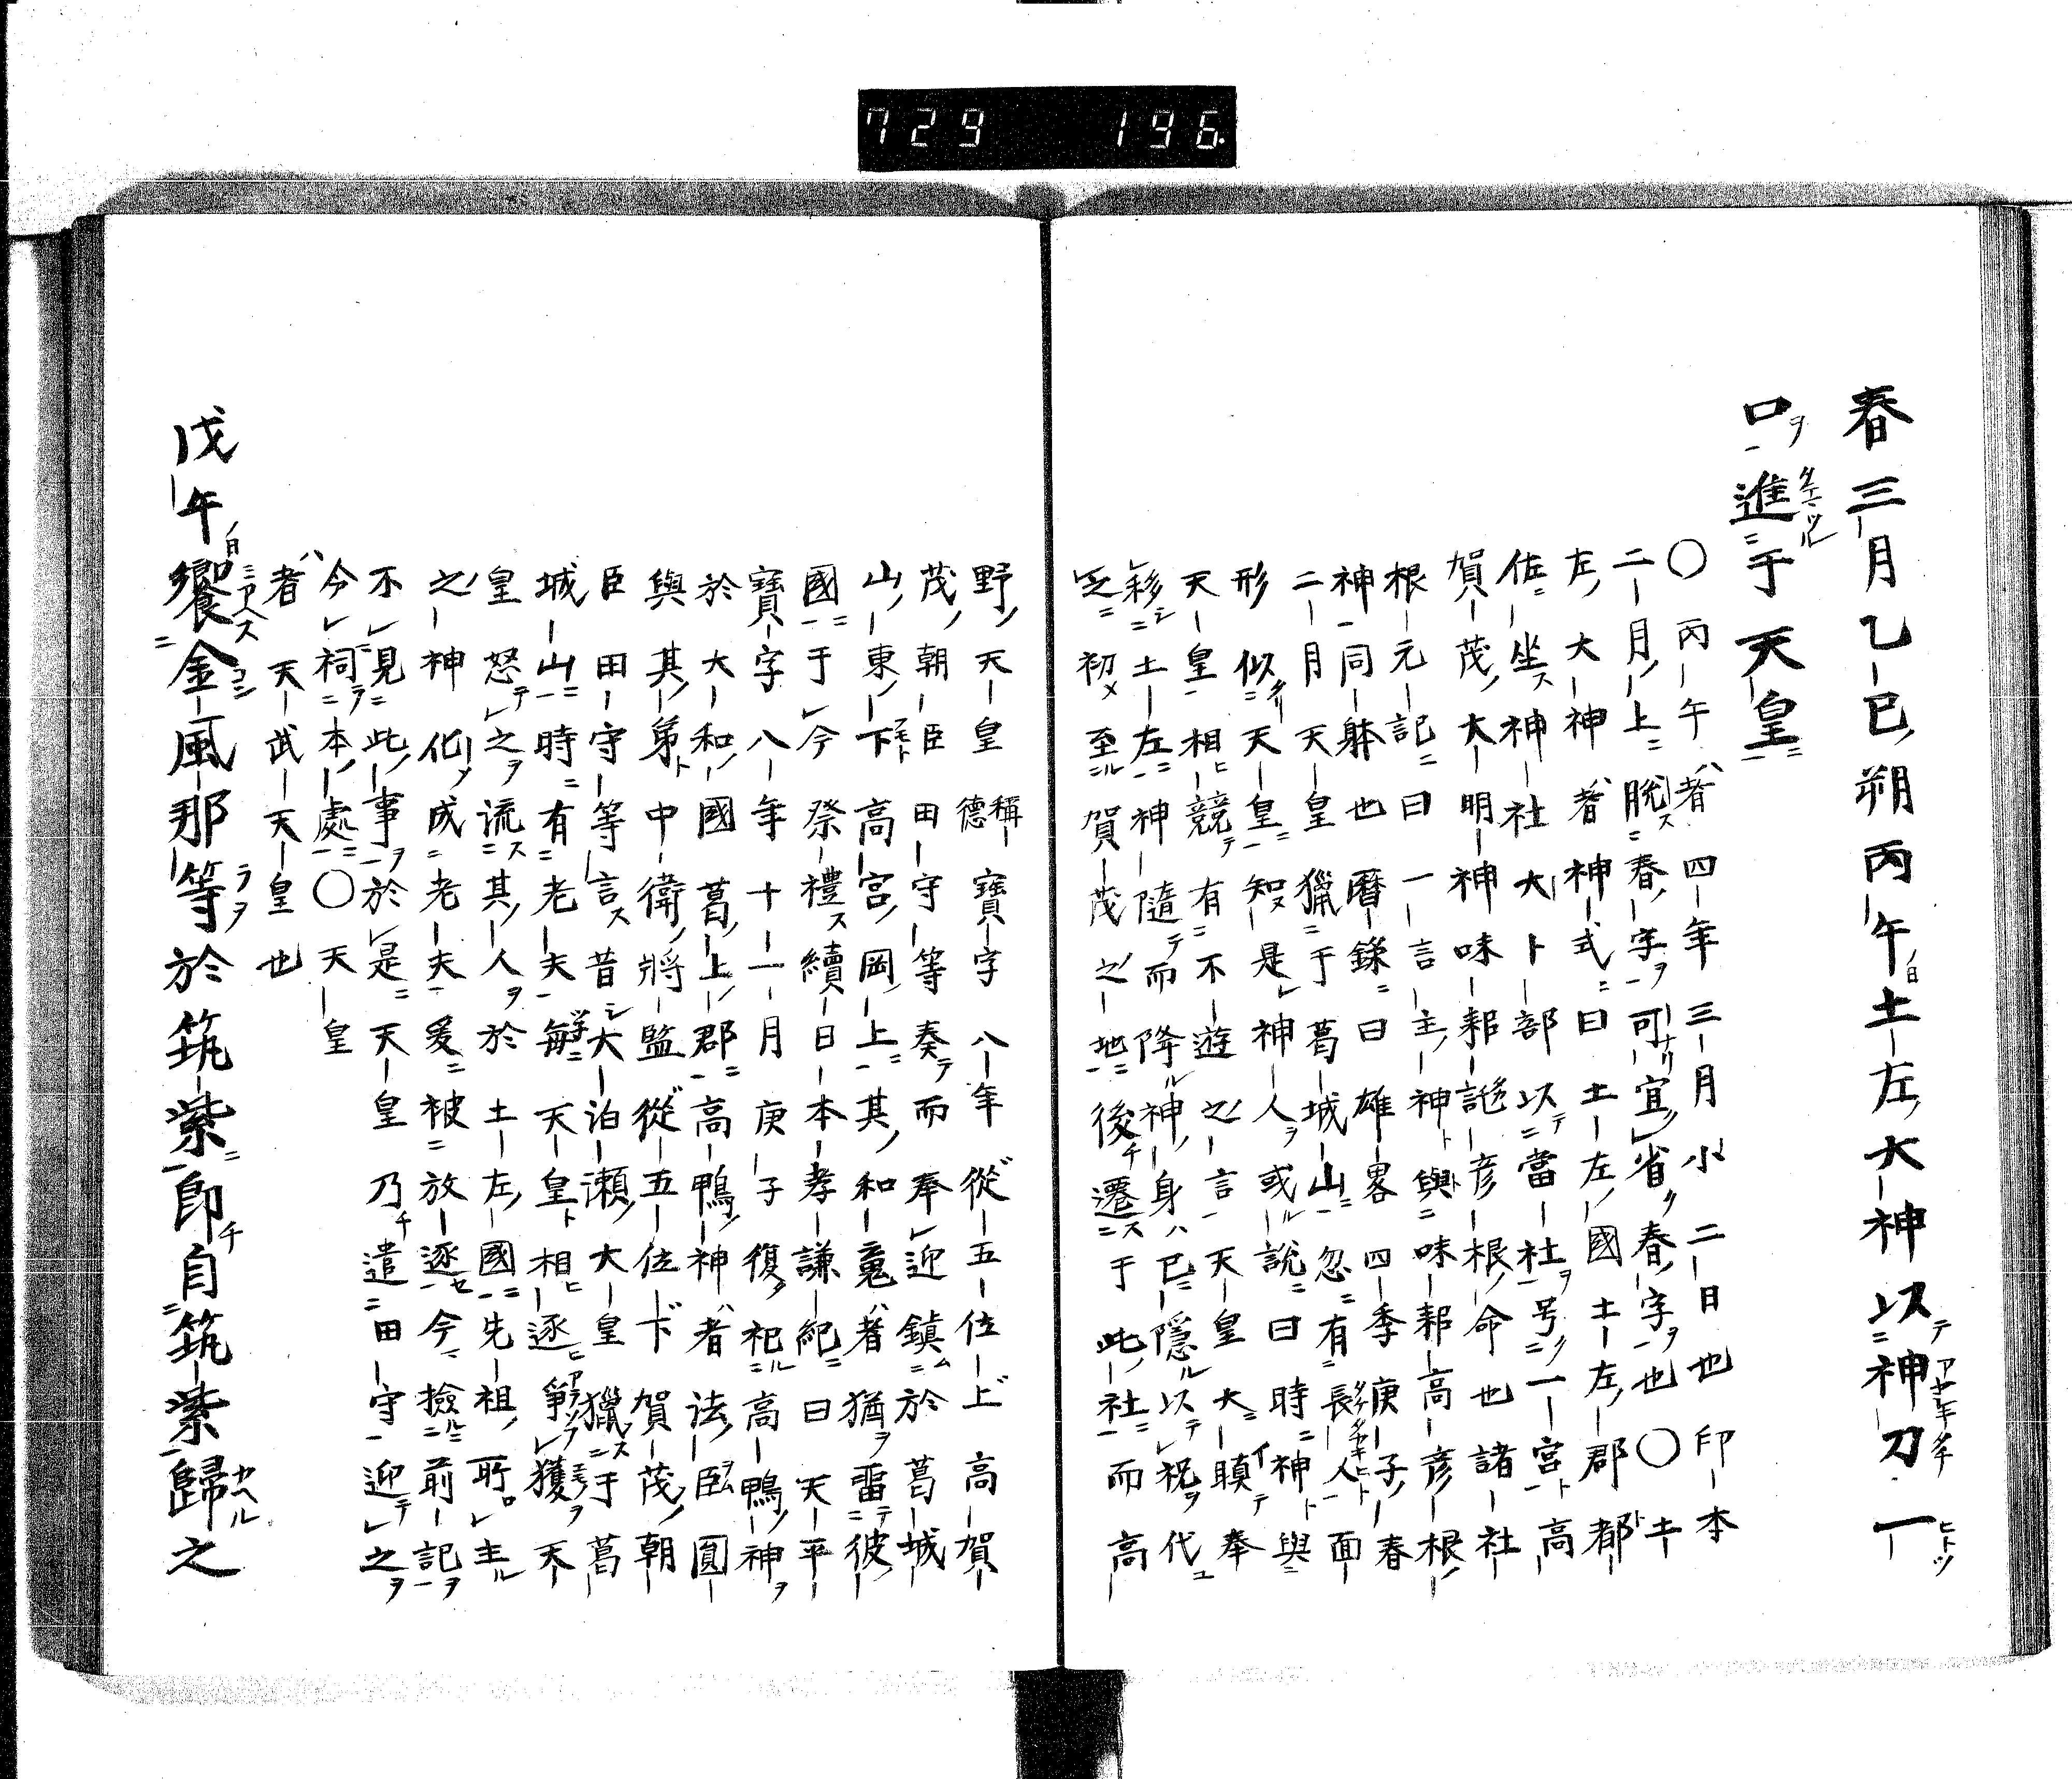 729 196.
春三月乙巳朔丙午土左大神以神刀一
口進于天皇
○丙午者四年三月小二日也印本
二月上脱春字可宜省春字也○土
左大神者神式曰土左國土左郡都
佐坐神社大卜部以當社号一宮高
賀茂大明神味耜詫彦根命也諸社
根元記曰一言主神與味耜高彦根
神同躰也暦録曰雄畧四季庚子春
二月天皇獵于葛城山忽有長人面
形似天皇知是神人或説曰時神與
天皇相競有不遊之言天皇大瞋奉
移土左神隨而降神身已隱以祝代
之初至賀茂之地後遷于此社而高
野天皇稱德寶字八年從五位上高賀
茂朝臣田守等奏而奉迎鎮於葛城
山東下高宮岡上其和䰟者猶留彼
國于今祭禮續日本孝謙紀曰天平
寶字八年十一月庚子復祀高鴨神
於大和國葛上郡高鴨神者法臣圓
與其弟中衛將監從五位下賀茂朝
臣田守等言昔大泊瀬大皇獵于葛
城山時有老夫毎天皇相逐爭獲天
皇怒之流其人於土左國先祖所主
之神化成老夫爰被放逐今撿前記
不見此事於是天皇乃遣田守迎之
今祠本處○天皇
者天武天皇也
戊午饗金風那等於筑紫即自筑紫歸之